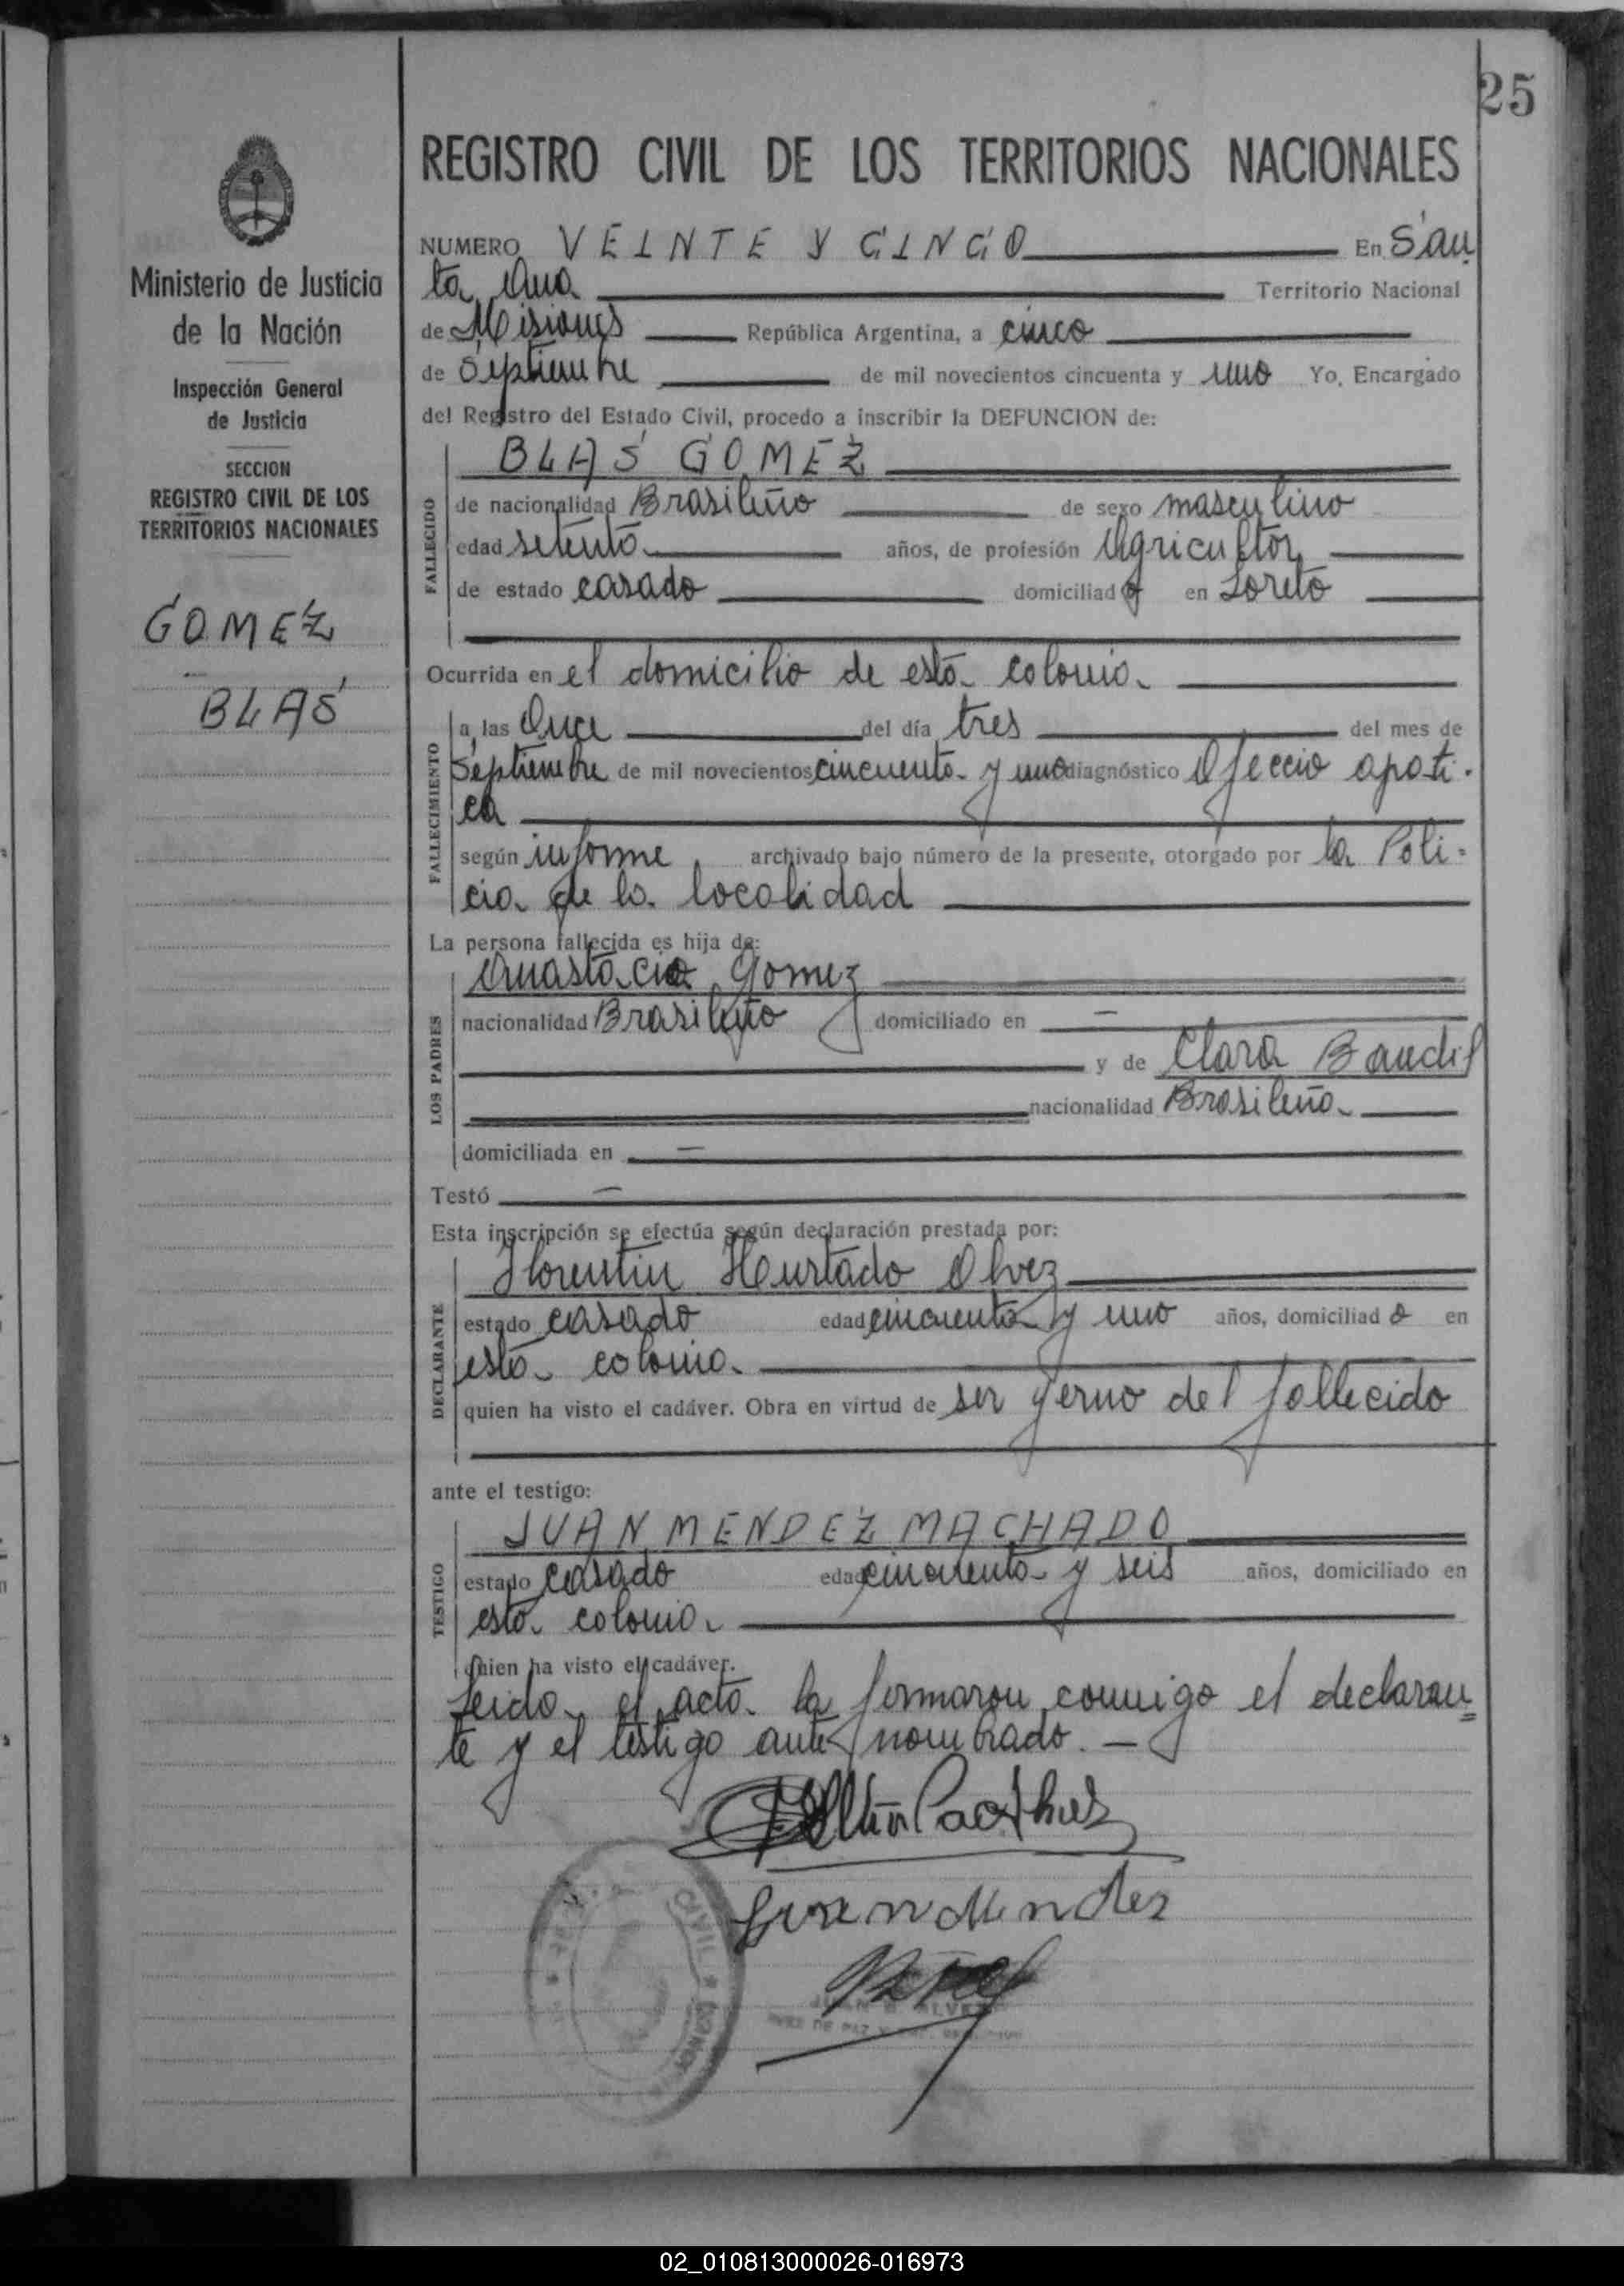 25
Ministerio de Justicia
de la Nación
Inspección General
de Justicia
SECCION
REGISTRO CIVIL DE LOS
TERRITORIOS NACIONALES
GOMEZ
BLAS
REGISTRO CIVIL DE LOS TERRITORIOS NACIONALES
NUMERO VEINTE Y CINCO En San
ta Ana Territorio Nacional
de Misiones República Argentina, a cinco
de Septiembre de mil novecientos cincuenta y uno Yo, Encargado
del Registro del Estado Civil, procedo a inscribir la DEFUNCION de:
FALLECIDO
BLAS GOMEZ
de nacionalidad Brasileño de sexo masculino
edad setenta años, de profesión Agricultor
de estado casado domiciliado en Loreto
Ocurrida en el domicilio de esta colonia
FALLECIMIENTO
a las Once del día tres del mes de
Septiembre de mil novecientos cincuenta y uno diagnóstico Afeccio apati-
ca
según informe archivado bajo número de la presente, otorgado por la Poli-
cia de la localidad
La persona fallecida es hija de:
LOS PADRES
Anastacio Gomez
nacionalidad Brasileño domiciliado en —
y de Clara Baudil
nacionalidad Brasileña
domiciliada en —
Testó —
Esta inscripción se efectúa según declaración prestada por:
DECLARANTE
Florentin Hurtado Alvez
estado casado edad cincuenta y uno años, domiciliado en
esta colonia
quien ha visto el cadáver. Obra en virtud de ser yerno del fallecido
ante el testigo:
TESTIGO
JUAN MENDEZ MACHADO
estado casado edad cincuenta y seis años, domiciliado en
esta colonia
quien ha visto el cadáver.
Leida el acta la firmaron conmigo el declaran=
te y el testigo ante nombrado. —
Juan Mendez
CIVIL
JUAN ALVEZ
JUEZ DE PAZ
02_010813000026-016973